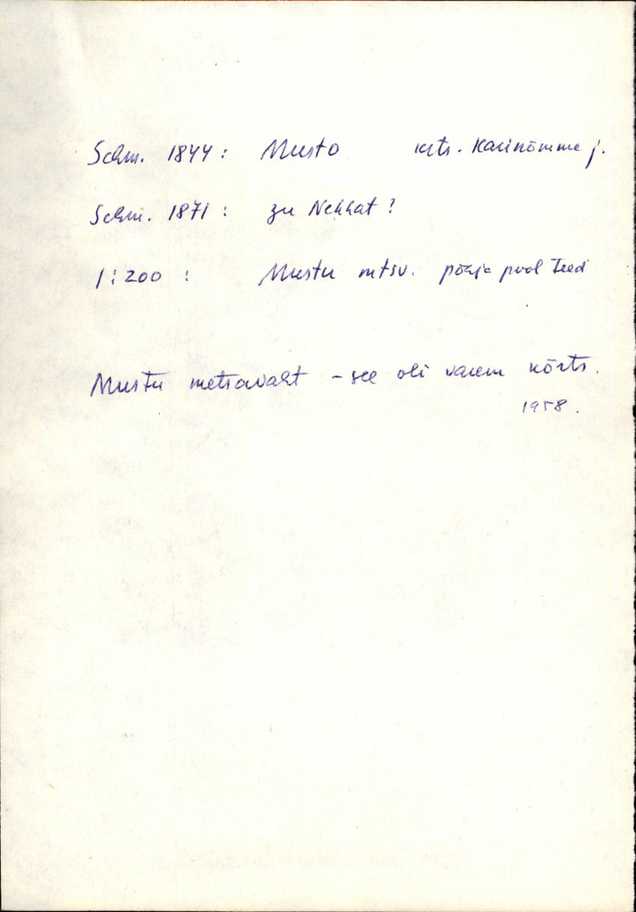 Schm. 1844: Musto krts. Karinõmme j.
Schm. 1871: zu Nehhat?
1:200: Mustu mtsv. põhja pool teed
Mustu metsavaht - see oli varem kõrts.
1958.